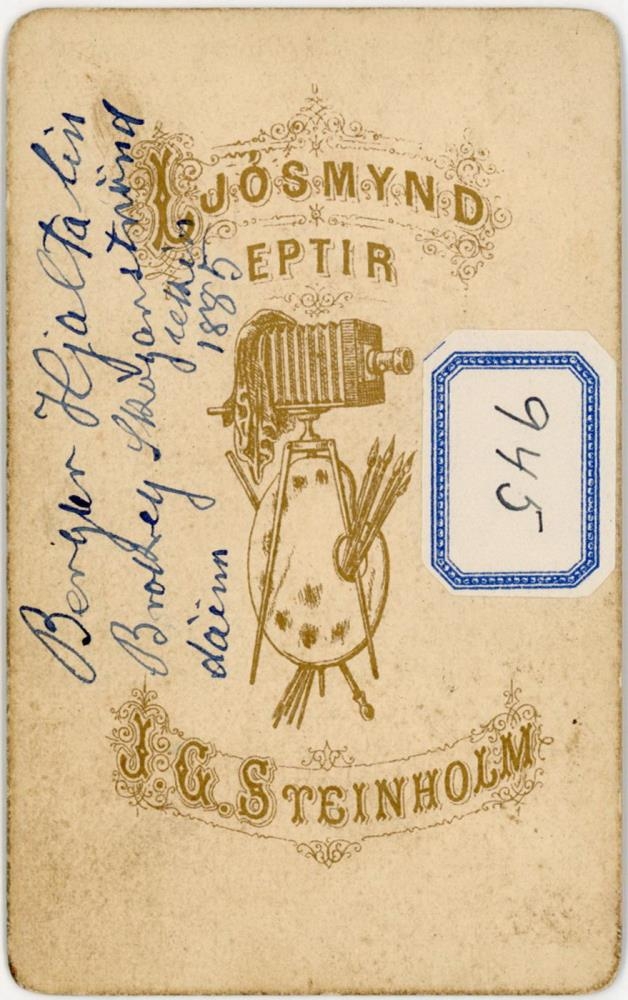 LJÓSMYND
EPTIR
J. G. STEINHOLM
Bergþor Hjaltalin
Brokey Skógarströnd
1885
dáinn
945